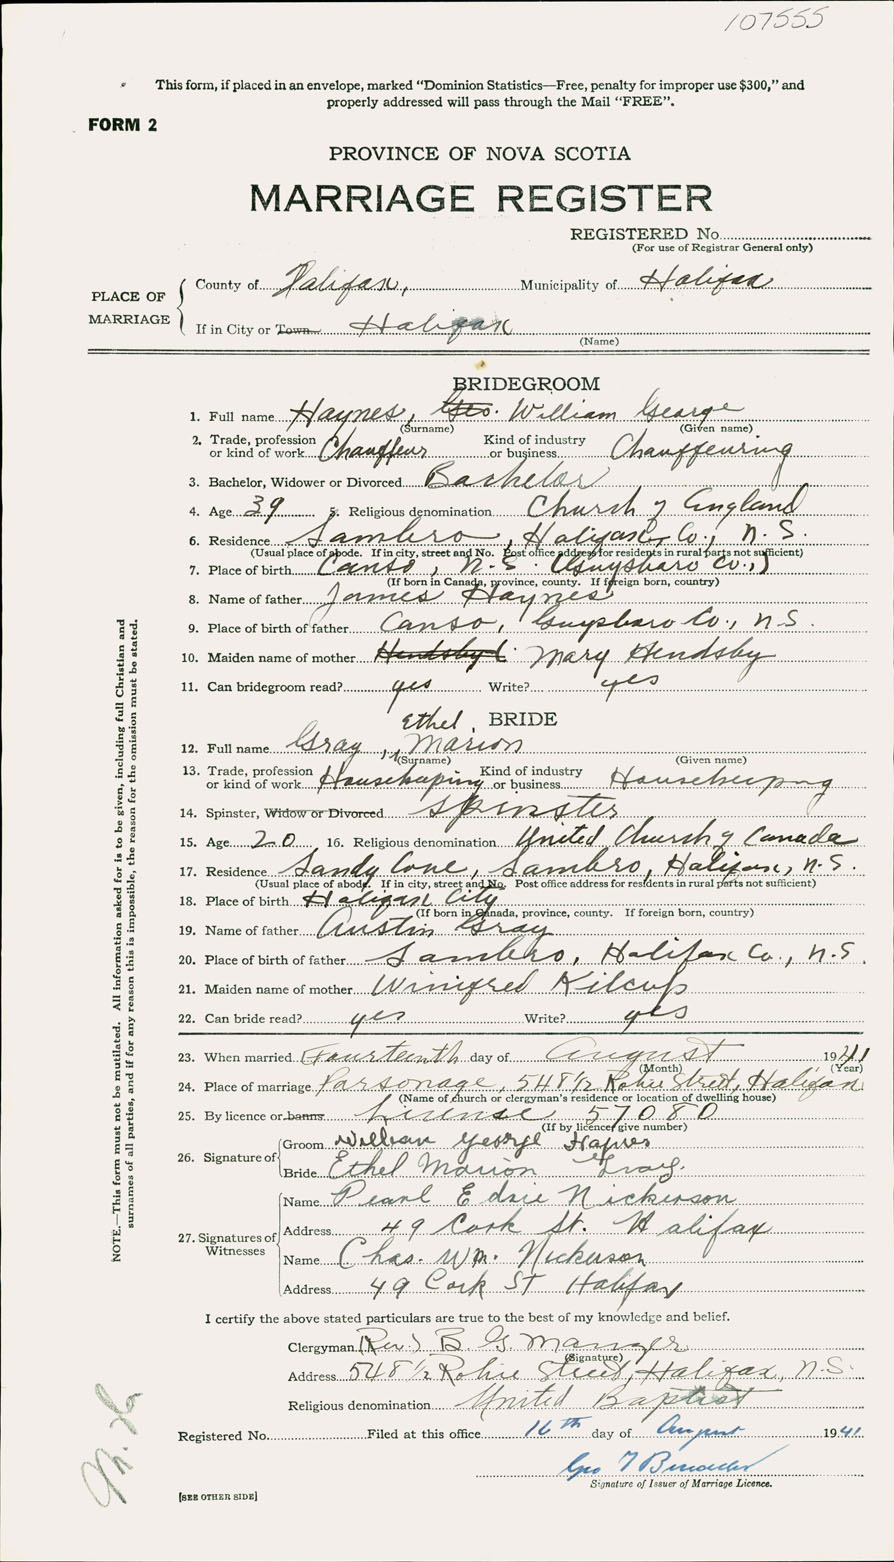 107555
This form, if placed in an envelope, marked "Dominion Statistics—Free, penalty for improper use $300," and
properly addressed will pass through the Mail "FREE".
FORM 2
PROVINCE OF NOVA SCOTIA
MARRIAGE REGISTER
REGISTERED No.
(For use of Registrar General only)
PLACE OF MARRIAGE
County of Halifax, Municipality of Halifax
If in City or Town Halifax
(Name)
BRIDEGROOM
1. Full name Haynes, Geo. William George
(Surname) (Given name)
2. Trade, profession or kind of work Chauffeur Kind of industry or business Chauffeuring
3. Bachelor, Widower or Divorced Bachelor
4. Age 39 5. Religious denomination Church of England
6. Residence Sambro, Halifax Co., N.S.
(Usual place of abode. If in city, street and No. Post office address for residents in rural parts not sufficient)
7. Place of birth Canso, N.S. (Guysboro Co.,)
(If born in Canada, province, county. If foreign born, country)
8. Name of father James Haynes
9. Place of birth of father Canso, Guysboro Co., N.S.
10. Maiden name of mother Hendsby Mary Hendsby
11. Can bridegroom read? yes Write? yes
BRIDE
Ethel
12. Full name Gray, Marion
(Surname) (Given name)
13. Trade, profession or kind of work Housekeeping Kind of industry or business Housekeeping
14. Spinster, Widow or Divorced Spinster
15. Age 20 16. Religious denomination United Church of Canada
17. Residence Sandy Cove, Sambro, Halifax, N.S.
(Usual place of abode. If in city, street and No. Post office address for residents in rural parts not sufficient)
18. Place of birth Halifax City
(If born in Canada, province, county. If foreign born, country)
19. Name of father Austin Gray
20. Place of birth of father Sambro, Halifax Co., N.S.
21. Maiden name of mother Winifred Kilcup
22. Can bride read? yes Write? yes
23. When married Fourteenth day of August 1941
(Month) (Year)
24. Place of marriage Parsonage, 548½ Robie Street, Halifax
(Name of church or clergyman's residence or location of dwelling house)
25. By licence or banns License 57080
(If by licence give number)
26. Signature of
Groom William George Haynes
Bride Ethel Marion Gray.
27. Signatures of Witnesses
Name Pearl Edsie Nickerson
Address 49 Cork St. Halifax
Name Chas. Wm. Nickerson
Address 49 Cork St Halifax
I certify the above stated particulars are true to the best of my knowledge and belief.
Clergyman (Rev.) B. G. Manzer
(Signature)
Address 548½ Robie Street, Halifax, N.S.
Religious denomination United Baptist
Registered No. Filed at this office 16th day of August 1941
Geo T
Signature of Issuer of Marriage Licence.
[SEE OTHER SIDE]
NOTE.—This form must not be mutilated. All information asked for is to be given, including full Christian and
surnames of all parties, and if for any reason this is impossible, the reason for the omission must be stated.